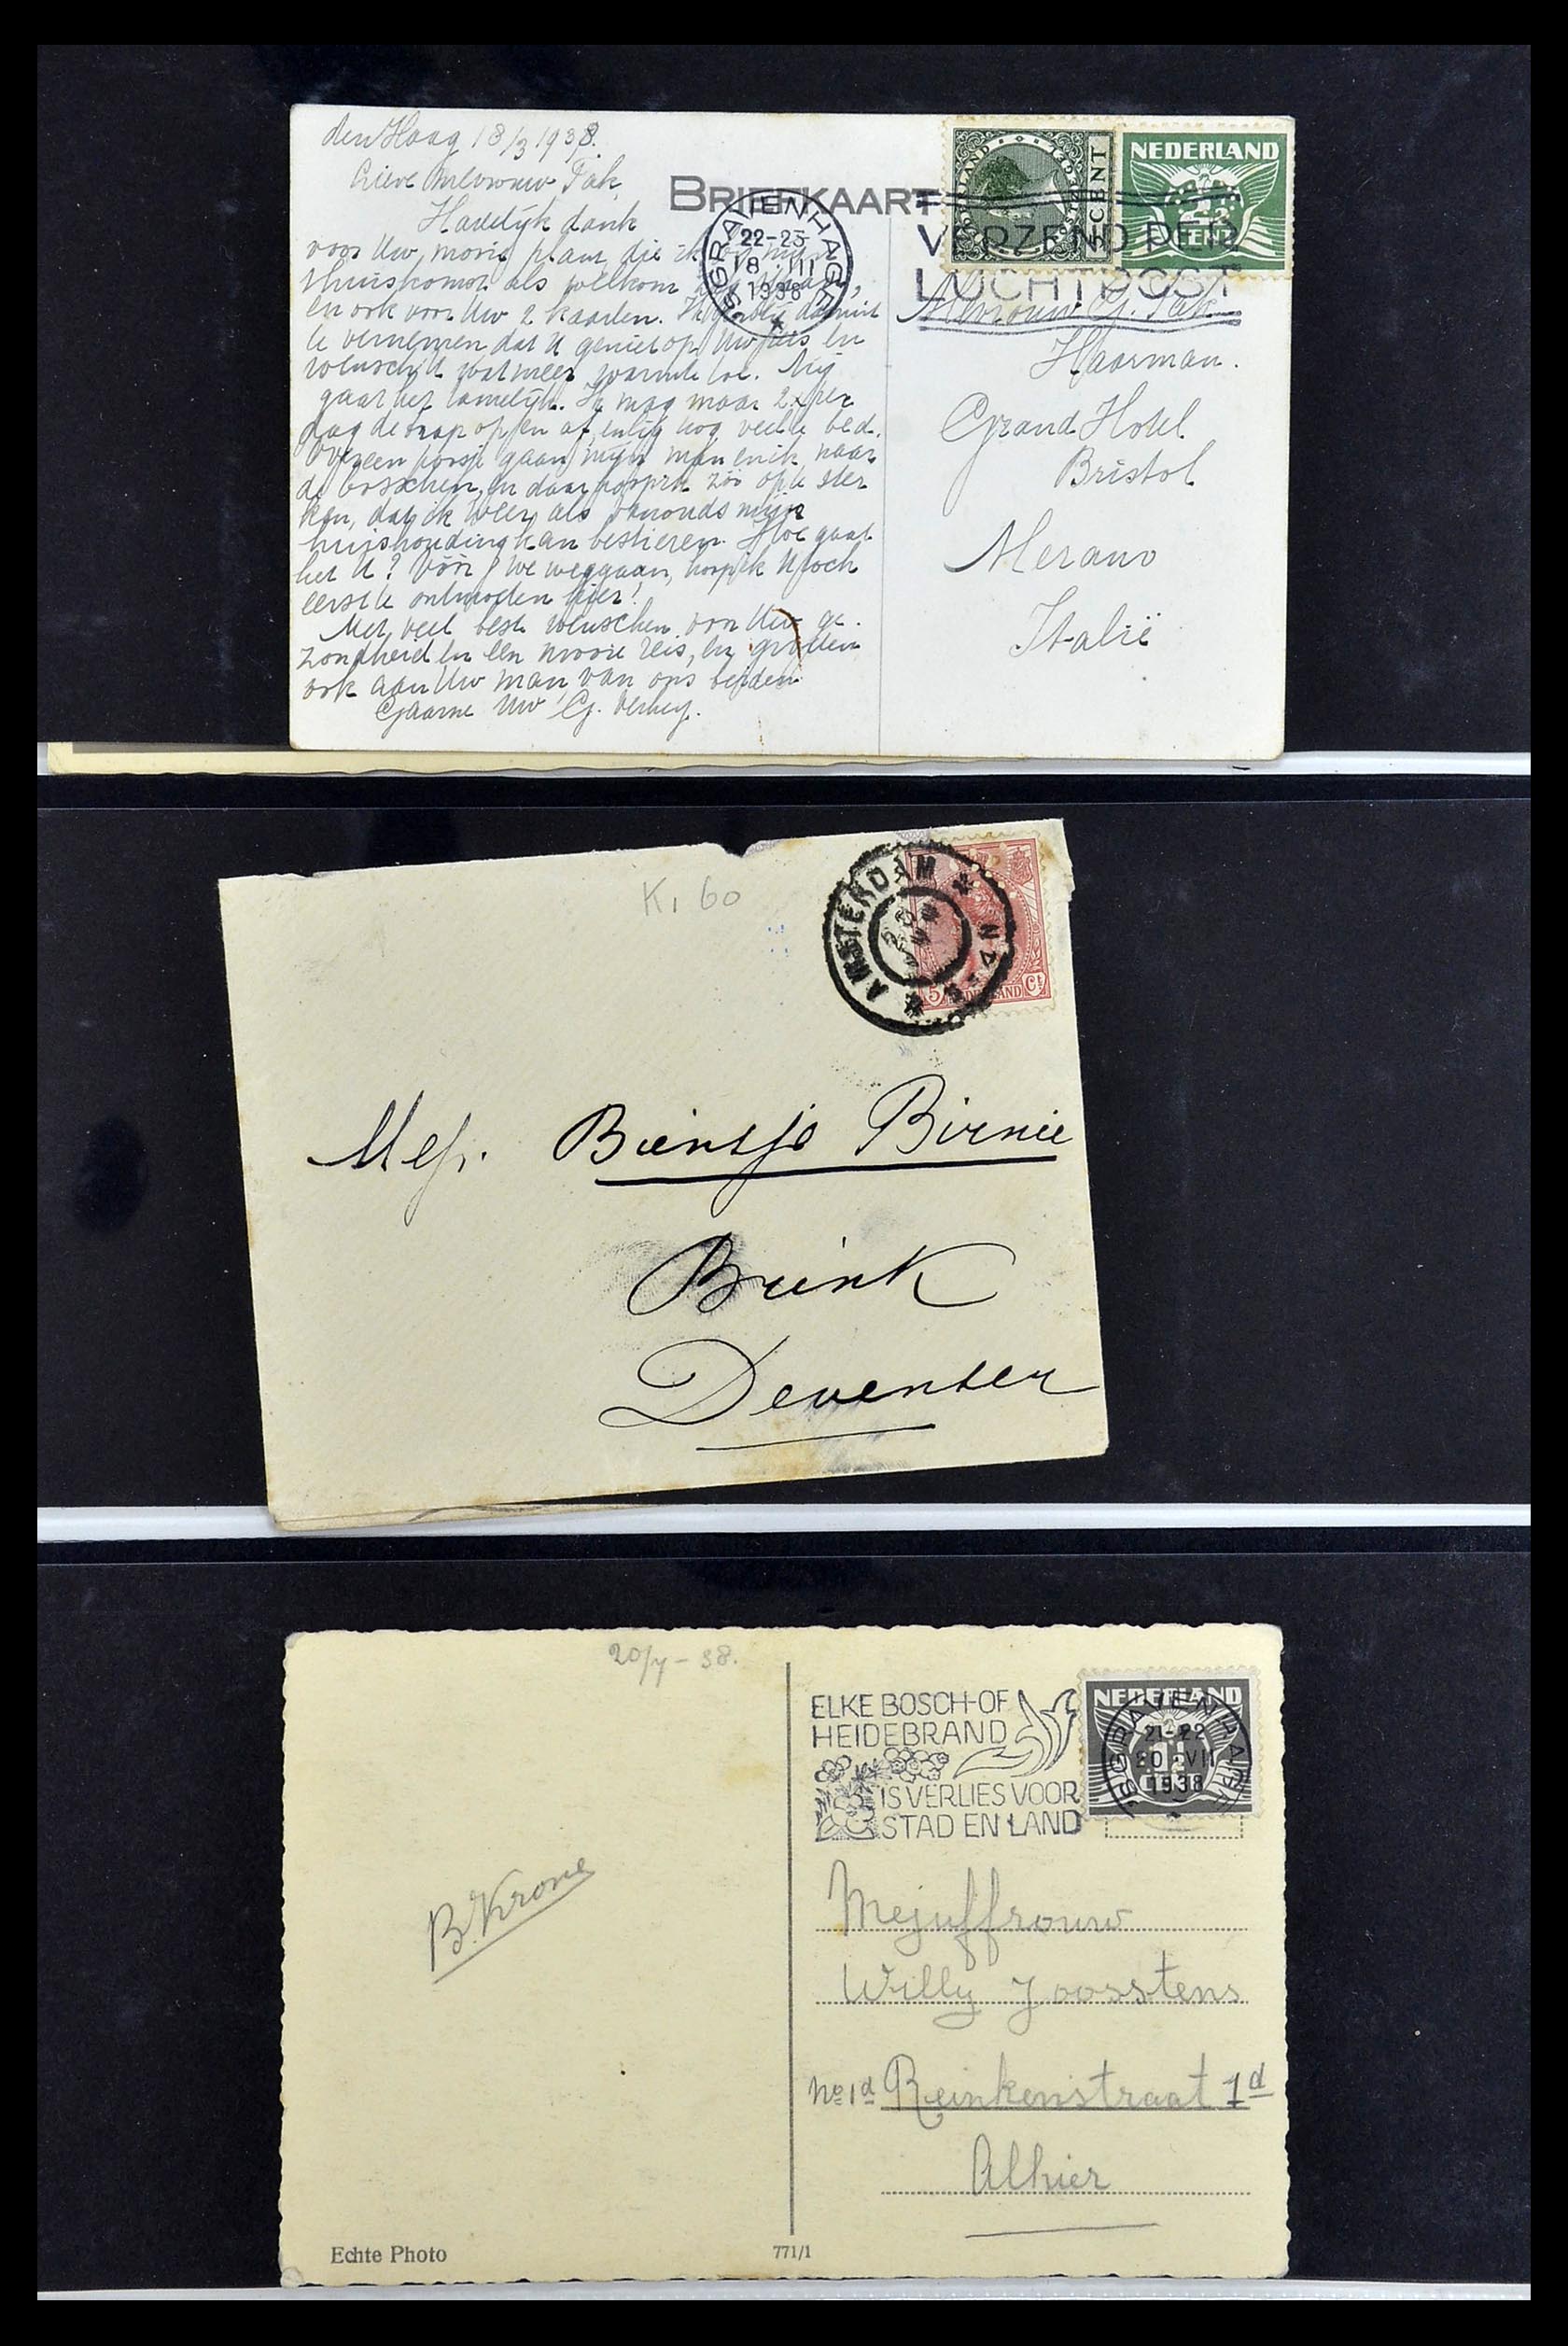 den Haag 18/3 1938.
Lieve Mevrouw Tak,
Hartelijk dank
voor Uw mooie plant die ik bij mijn
thuiskomst als welkom
en ook voor Uw 2 kaarten.
te vernemen dat U geniet op Uw reis en
wensch U wat meer warmte toe. Mij
gaat het tamelijk. Ik mag maar 2 x per
dag de trap op en af, enlig nog veel te bed.
Over een poosje gaan mijn man en ik naar
de bosschen, en daar hoop ik zóó op te ster
ken, dat ik weer als vanouds mijn
huishouding kan bestieren. Hoe gaat
het U? Vóór we weggaan, hoop ik U toch
eerst te ontmoeten hier!
Met veel beste wenschen voor Uw ge-
zondheid en een mooie reis, en groeten
ook aan Uw man van ons beiden
Gaarne Uw G. Verhey.
BRIEFKAART
'SGRAVENHAGE
22-23
18 III
1938
VERZEND PER
LUCHTPOST
5 CENT
NEDERLAND
2½
CENT
Mevrouw G. Tak
Haarman.
Grand Hotel
Bristol
Merano
Italië
K, 60
AMSTERDAM
5 NEDERLAND Ct
Mej. Bientje Birnie
Brink
Deventer
20/7 - 38.
ELKE BOSCH- OF
HEIDEBRAND
IS VERLIES VOOR
STAD EN LAND
NEDERLAND
1½
CENT
'SGRAVENHAGE
21-22
20 VII
1938
B. Krone
Mejuffrouw
Willy Joosstens
No 1d Reinkenstraat 1d
Alhier
Echte Photo
771/1